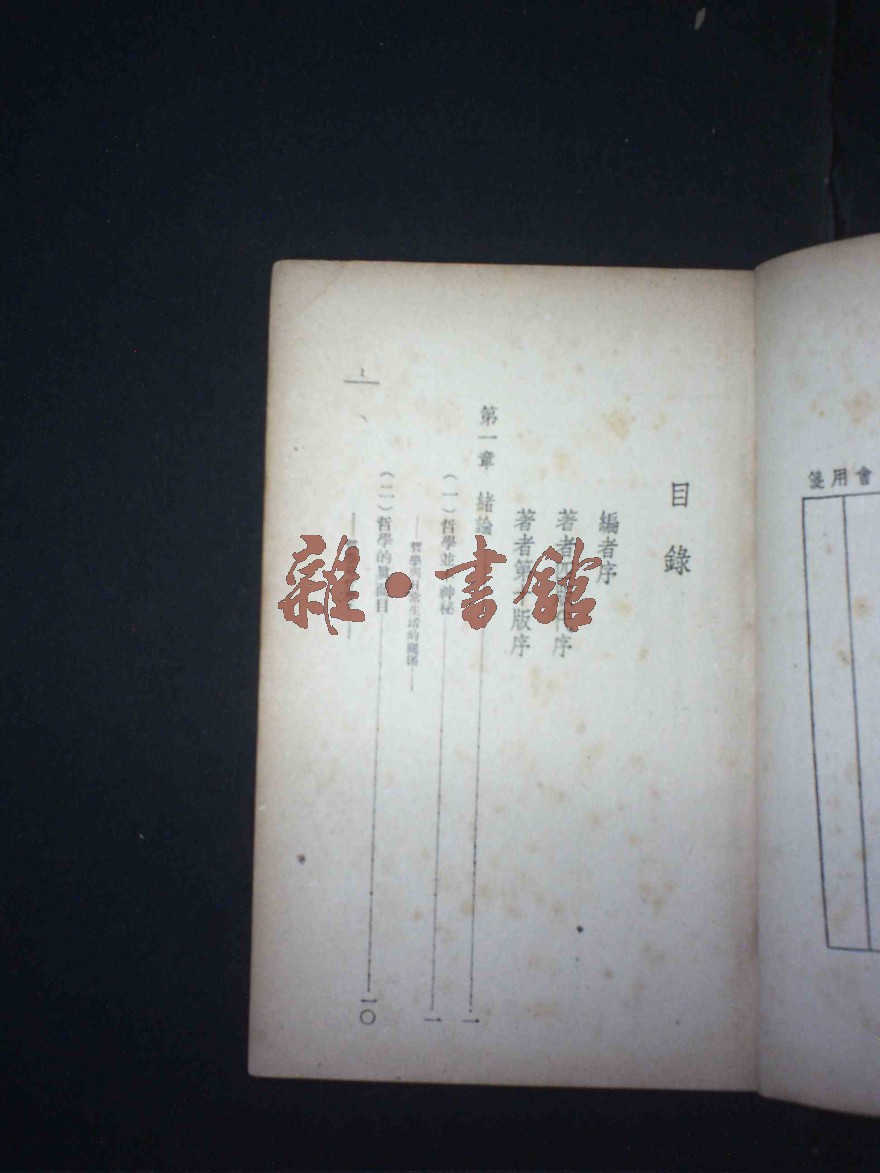 會用箋
目錄
編者序
著者序
著者第版序
第一章 緒論 一
(一)哲學並神秘 一
——哲學生活的關係——
(二)哲學的面目 一〇
1
雜·書館